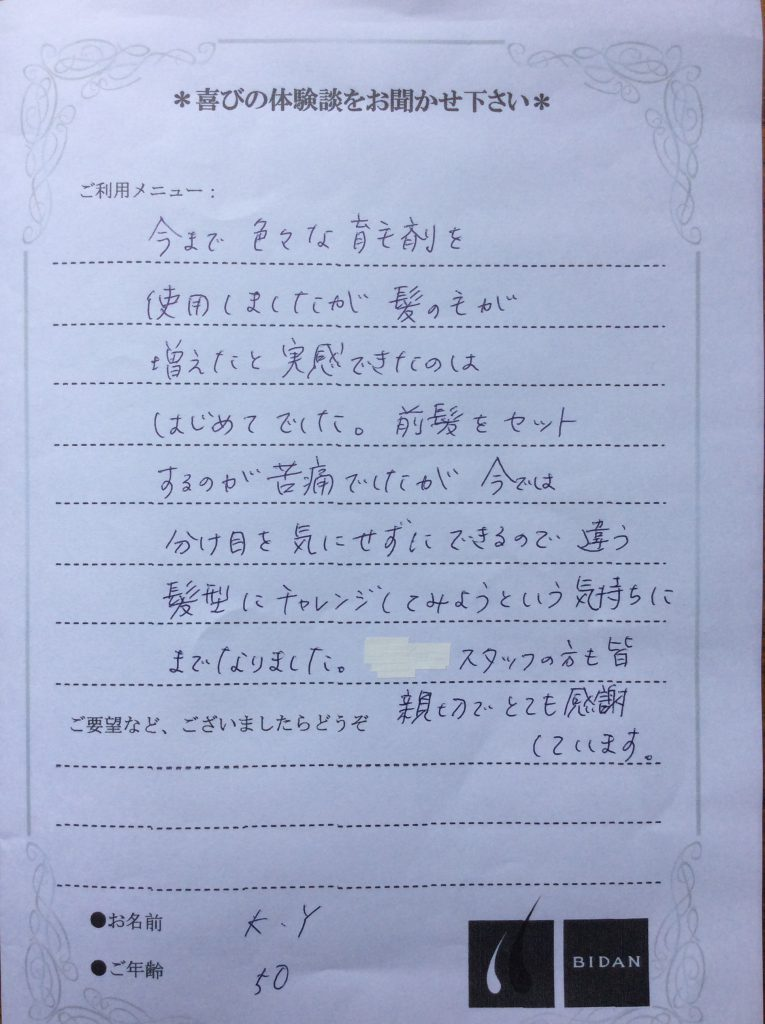 ＊喜びの体験談をお聞かせ下さい＊
ご利用メニュー：
今まで 色々な 育毛剤を
使用しましたが 髪の毛が
増えたと 実感できたのは
はじめて でした。 前髪を セット
するのが 苦痛でしたが 今では
分け目を 気にせずに できるので 違う
髪型に チャレンジしてみようという 気持ちに
までなりました。 スタッフの方も 皆
ご要望など、ございましたらどうぞ 親切で とても 感謝
しています。
●お名前 K.Y
●ご年齢 50
BIDAN